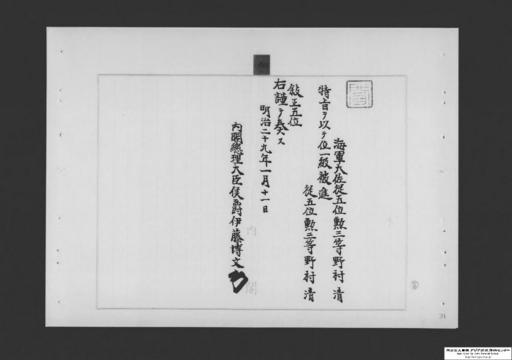 海軍大佐従五位勲三等野村清
特旨ヲ以テ位一級被進
従五位勲三等野村清
叙正五位
右謹テ奏ス
明治二十九年一月十一日
内閣総理大臣侯爵伊藤博文